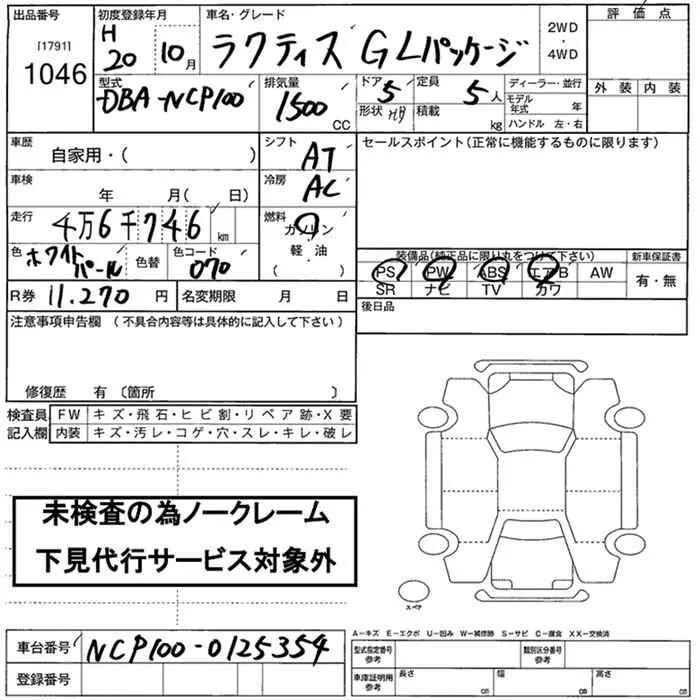 出品番号
[1791]
1046
初度登録年月
H
20 10月
車名・グレード
ラクティス GLパッケージ
2WD
・
4WD
評価点
外装 内装
型式
DBA-NCP100
排気量
1500
CC
ドア 5
形状
定員 5人
積載 kg
ディーラー・並行
モデル年式 年
ハンドル 左・右
車歴
自家用・( )
シフト
AT
セールスポイント(正常に機能するものに限ります)
車検
年 月( 日)
冷房
AC
走行
4万6千746 km
燃料
ガソリン
軽・油
( )
色
ホワイトパール
色替
色コード
070
装備品(純正品に限り丸をつけて下さい)
新車保証書
PS PW ABS エアB AW
SR ナビ TV カワ
有・無
R券 11.270 円
名変期限 月 日
後日品
注意事項申告欄 (不具合内容等は具体的に記入して下さい)
修復歴 有 〔箇所 〕
検査員記入欄
FW キズ・飛石・ヒビ割・リペア跡・X要
内装 キズ・汚レ・コゲ・穴・スレ・キレ・破レ
未検査の為ノークレーム
下見代行サービス対象外
スペア
A-キズ E-エクボ U-凹み W-補修跡 S-サビ C-腐食 XX-交換済
車台番号 NCP100-0125354
登録番号
型式指定番号
参考
類別区分番号
参考
車庫証明用
参考
長さ cm
幅 cm
高さ cm